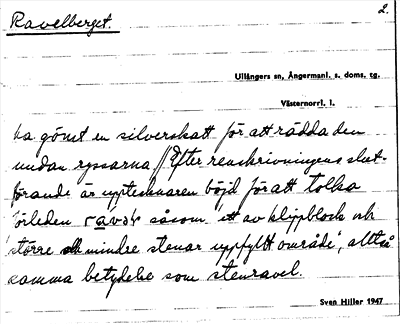 Ravelberget.
2.
Ullångers sn, Ångermanl. s. doms. tg.
Västernorrl. l.
ha gömt en silverskatt för att rädda den
undan ryssarna // Efter renskrivningens slut-
förande är upptecknaren böjd för att tolka
förleden ravəl såsom "ett av klippblock och
större och mindre stenar uppfyllt område", alltså
samma betydelse som stenravel.
Sven Hiller 1947